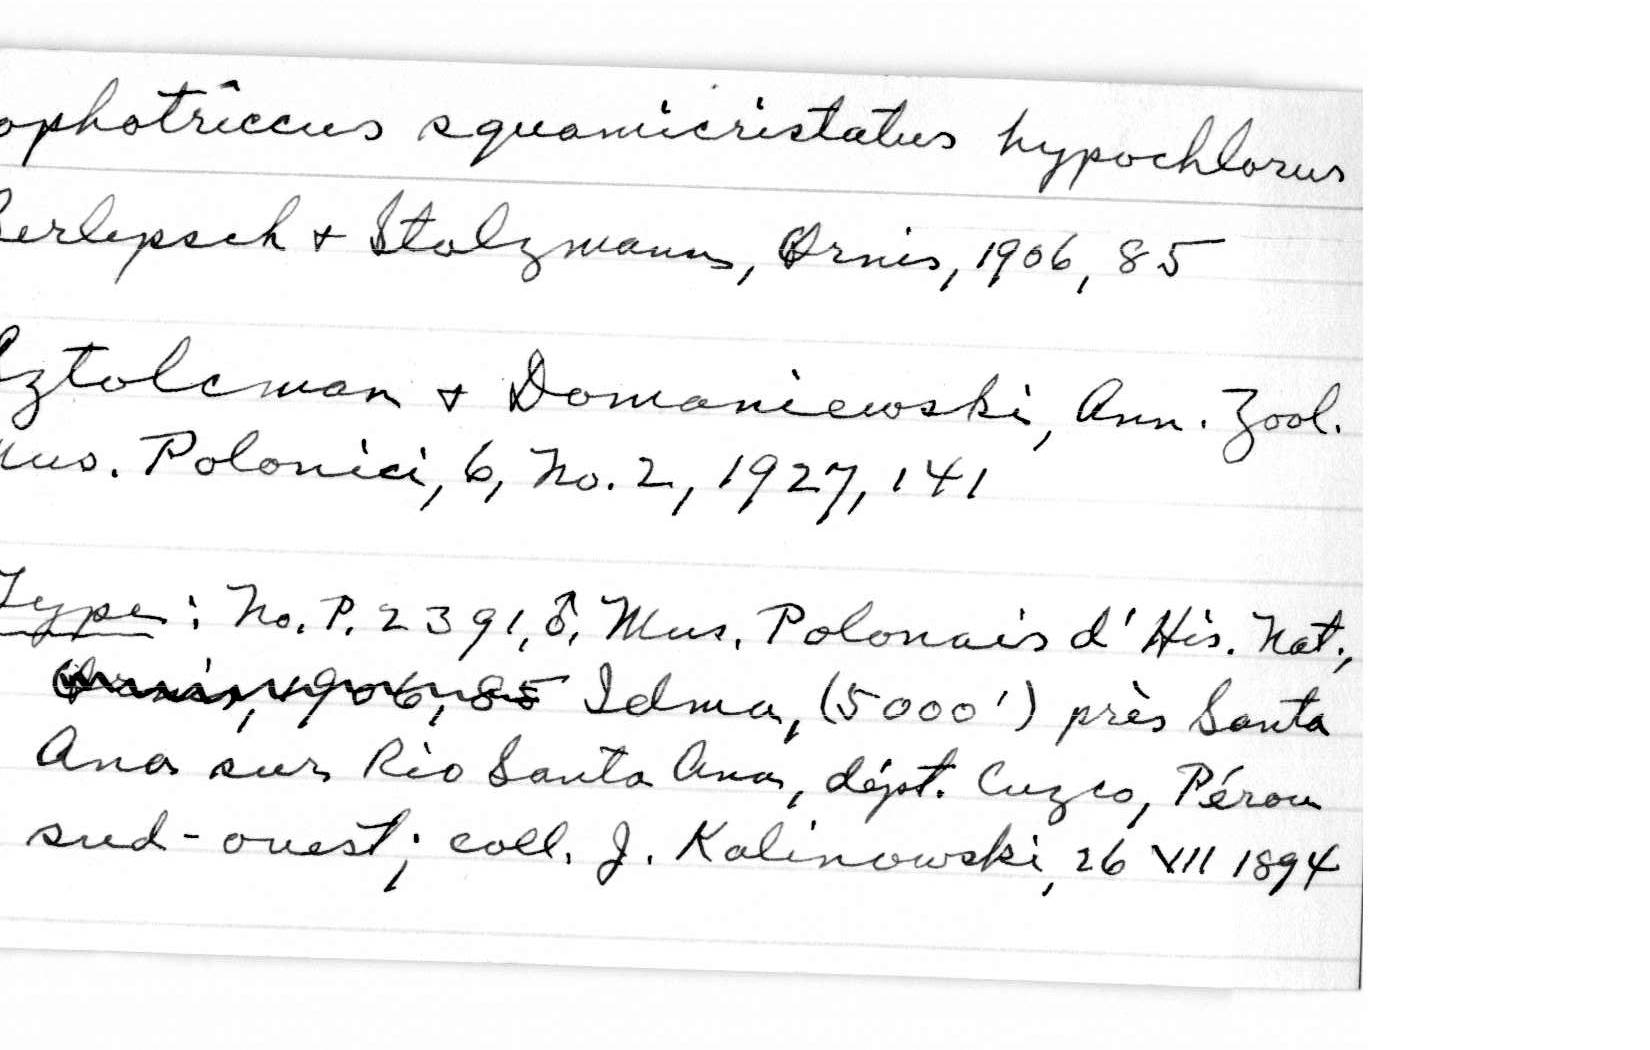 ophotriccus squamicristatus hypochlorus
Berlepsch + Stolzmann, Ornis, 1906, 85
Sztolcman + Domaniewski, Ann. Zool.
Mus. Polonici, 6, No. 2, 1927, 141
Type: No. P. 2391, ♂, Mus. Polonais d'His. Nat.,
Ornis, 1906, 85 Idma, (5000') près Santa
Ana sur Rio Santa Ana, dépt. Cuzco, Pérou
sud-ouest; coll. J. Kalinowski, 26 VII 1894